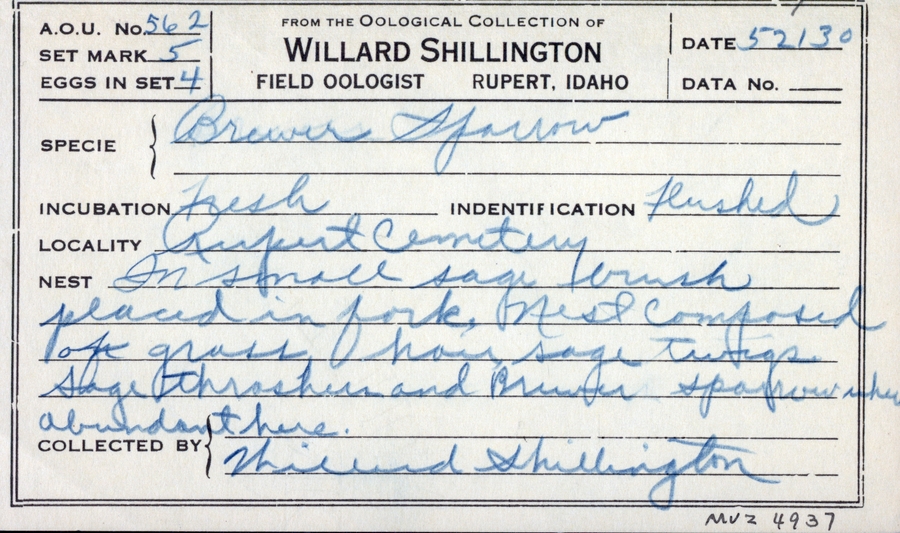 A.O.U. No. 562
SET MARK 5
EGGS IN SET 4
FROM THE OOLOGICAL COLLECTION OF
WILLARD SHILLINGTON
FIELD OOLOGIST RUPERT, IDAHO
DATE 52130
DATA No.
SPECIE Brewers Sparrow
INCUBATION Fresh INDENTIFICATION Flushed
LOCALITY Rupert Cemetery
NEST In small sage brush
placed in fork. Nest composed
of grass, hair, sage twigs
Sage thrashers and Brewer sparrow
abundant here.
COLLECTED BY Willard Shillington
MVZ 4937